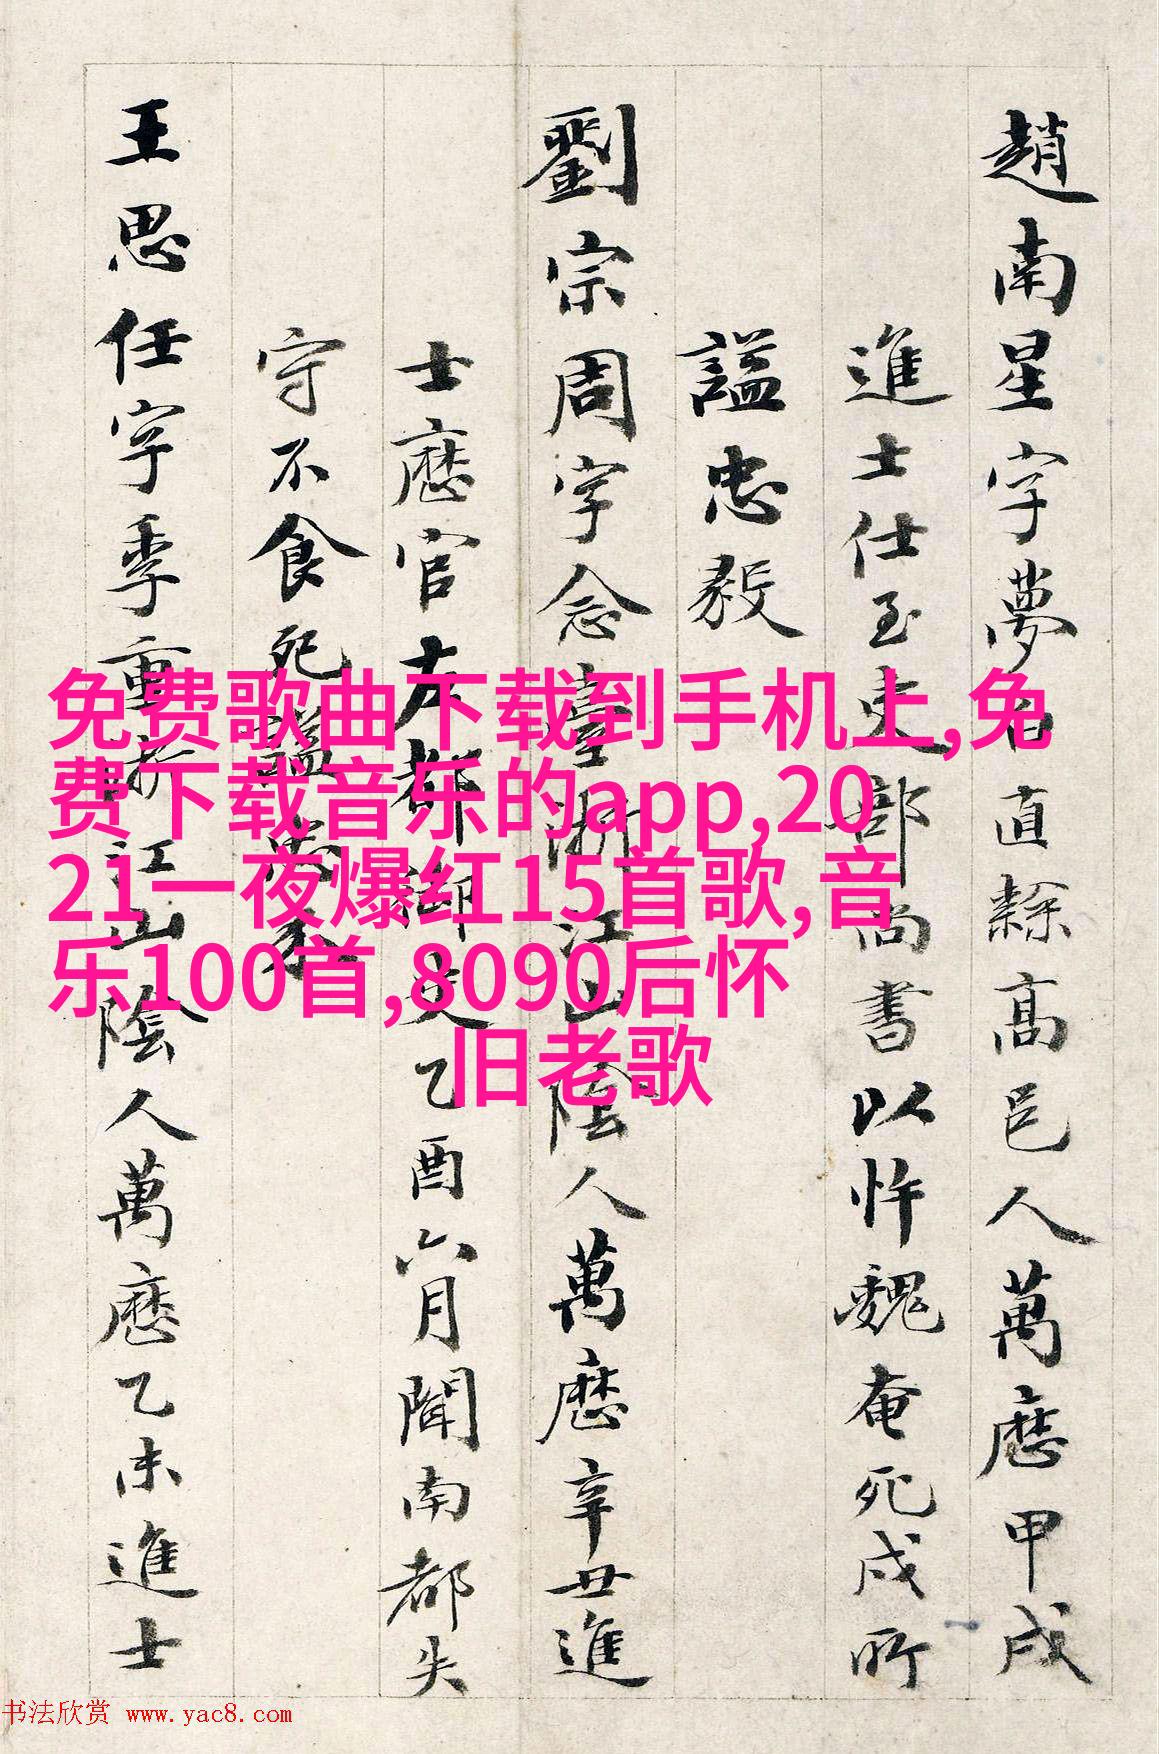 趙南星字夢白直隸高邑人萬曆甲戌
進士仕至吏部尚書以忤魏奄死戍所
諡忠毅
劉宗周字念臺浙江山陰人萬曆辛丑進
士歷官左都御史乙酉六月聞南都失
守不食死諡忠
王思任字季重浙江山陰人萬曆乙未進士
免费歌曲下载到手机上,免
费下载音乐的app,20
21一夜爆红15首歌,音
乐100首,8090后怀
旧老歌
书法欣赏 www.yac8.com